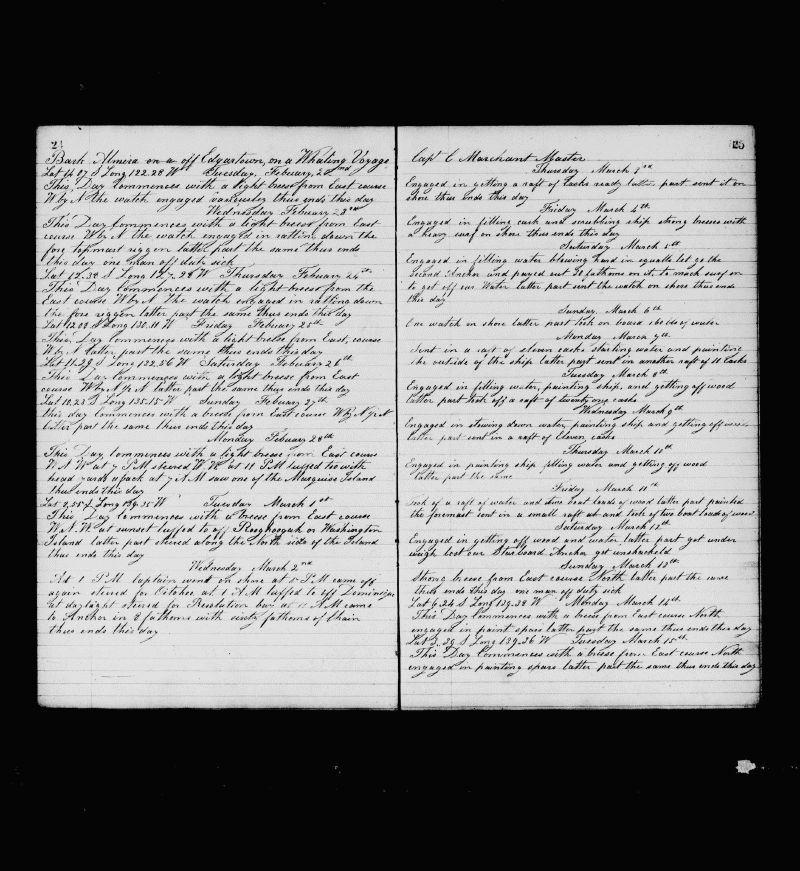 24
Bark Almira on a off Edgartown, on a Whaling Voyage
Lat 14.07 S Long 122.28 W Tuesday, February, 22nd
This, Day Commences with a light breese from East course
W by N the watch engaged variously thus ends this day
Wednesday February 23rd
This Day Commences with a light breese from East
course W by N the watch engaged in ratling down the
fore topmast riggen latter part the same thus ends
this day one man off duty sick
Lat 12.52 S Long 127.28 W Thursday February 24th
This Day Commences with a light breese from the
East course W by N the watch engaged in ratling down
the fore riggen latter part the same thus ends this day
Lat 12.08 S Long 130.10 W Friday February 25th
This, Day Commences with a light breese from East, course
W by N latter part the same thus ends this day
Lat 11.29 S Long 132.56 W Saturday February 26th
This Day Commences with a light breese from East
course W by N ½ N latter part the same thus ends this day
Lat 10.25 S Long 135.15 W Sunday February 27th
this day commences with a breese from East course W by N ½ N
latter part the same thus ends this day
Monday Febuary 28th
This Day Commences with a light breese from East course
W N W at 7 PM steered W at 11 PM luffed too with
head yards aback at 7 AM saw one of the Marquise Island
thus ends this day
Lat 8.55 S Long 139.35 W Tuesday March 1st
This Day Commences with a breese from East course
W.N.W at sunset luffed to off or Washington
Island latter part steered along the North side of the Island
thus ends this day
Wednesday March 2nd
At 1 PM Captain went on shore at 5 PM came off
again steered for at 1 AM luffed to off Dominique
at daylight steered for Resolution bay at 10 AM came
to Anchor in 8 fathems with sixty fathems of Chain
thus ends this day
25
Capt C Marchant Master
Thursday March 3rd
Engaged in getting a raft of Casks ready latter part sent it on
shore thus ends this day
Friday March 4th
Engaged in filling cask and scrubbing ship strong breeses with
a heavy surf on shore thus ends this day
Saturday March 5th
Engaged in filling water blowing hard in squalls let go the
second Anchor and payed out 30 fathoms on it to much surf on
to get off our Water latter part sent the watch on shore thus ends
this day
Sunday, March 6th
One watch on shore latter part took on board of water
Monday March 7th
Sent in a raft of eleven casks starting water and painting
the outside of the ship latter part sent in another raft of 18 Casks
Tuesday March 8th
Engaged in filling water, painting ship, and getting off wood
latter part took off a raft of twenty one casks
Wednesday March 9th
Engaged in stowing down water, painting ship and getting off
latter part sent in a raft of Eleven casks
Thursday March 10th
Engaged in painting ship filling water and getting off wood
latter part the same
Friday March 11th
Took of a raft of water and five boat loads of wood latter part painted
the foremast sent in a small raft and took of two boat loads of wood
Saturday March 12th
Engaged in getting off wood and water latter part got under
weigh lost our Starboard Anchor got unshackeld
Sunday March 13th
Strong breese from East course North latter part the same
thus ends this day one man off duty sick
Lat 6.24 S Long 139.28 W Monday March 14th
This Day Commences with a breese from East course North
engaged in paint spars latter part the same thus ends this day
Lat 3.29 S Long 139.26 W Tuesday March 15th
This Day Commences with a breese from East course North
engaged on painting spars latter part the same thus ends this day